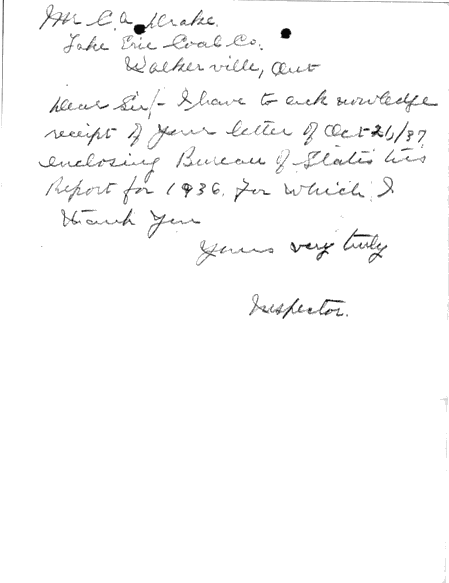 Mr C.A. Drake.
Lake Erie Coal Co.
Walkerville, Ont
Dear Sir/- I have to acknowledge
receipt of your letter of Oct 26/37
enclosing Bureau of Statistics
Report for 1936. for which I
thank you
Yours very truly
Inspector.